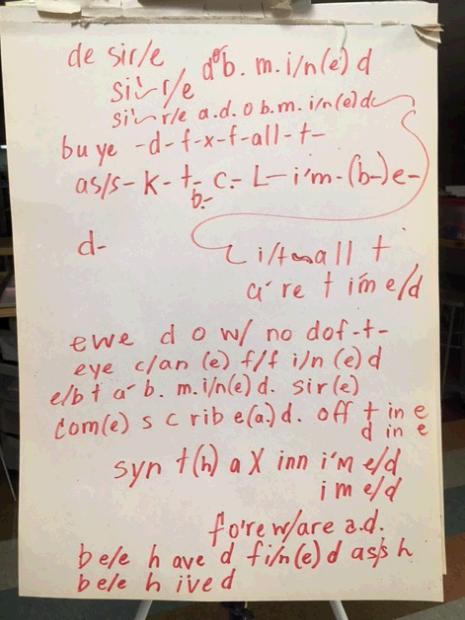 de sir/e
dob. m. i/n(e) d
sir/e
sir/e a.d. o b.m. i/n(e)d
bu ye -d-f-x-f-all-t-
as/s-k-t- c.-L-i'm-(b-)e-
b.-
d-
i/t all t
a' re t im e/d
ewe d o w/ no dof-t-
eye c/an (e) f/f i/n (e) d
e/b t a' b. m.i/n(e)d. sir(e)
com(e) s c rib e(a.)d. off t in e
d in e
syn t(h) a X inn i'm e/d
i m e/d
fo're w/are a.d.
be/e h ave d fi/n(e)d as/s h
be/e h ive d